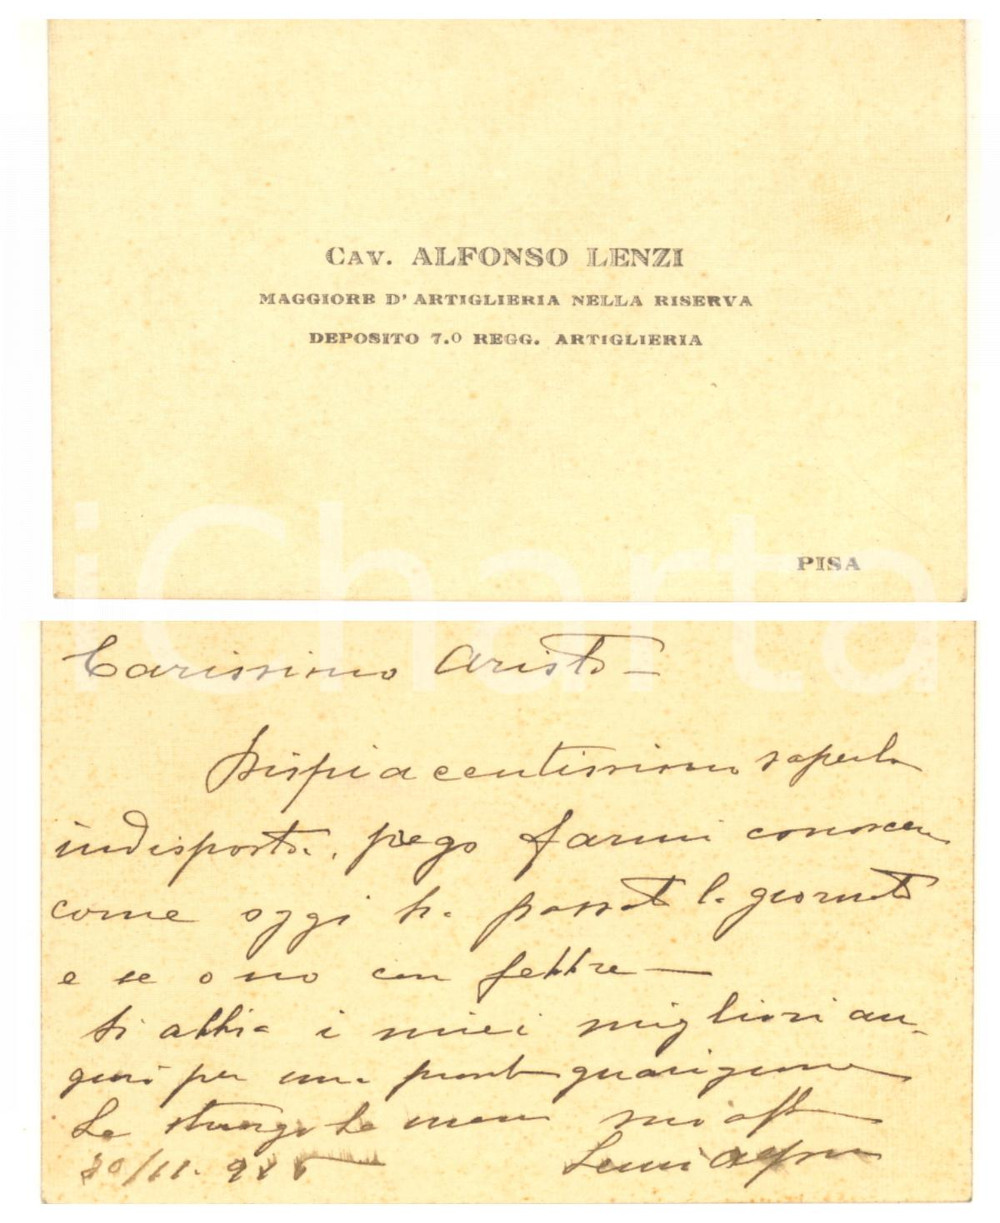 CAV. ALFONSO LENZI
MAGGIORE D'ARTIGLIERIA NELLA RISERVA
DEPOSITO 7.º REGG. ARTIGLIERIA
PISA
iCharta
Carissimo Aristo –
Dispiacentissimo saperla
indisposto, prego farmi conoscere
come oggi ha passato la giornata
e se o no con febbre –
Si abbia i miei migliori au-
guri per una pronta guarigione
Le stringo la mano suo aff
30/11. 92
Lenzi Alfonso